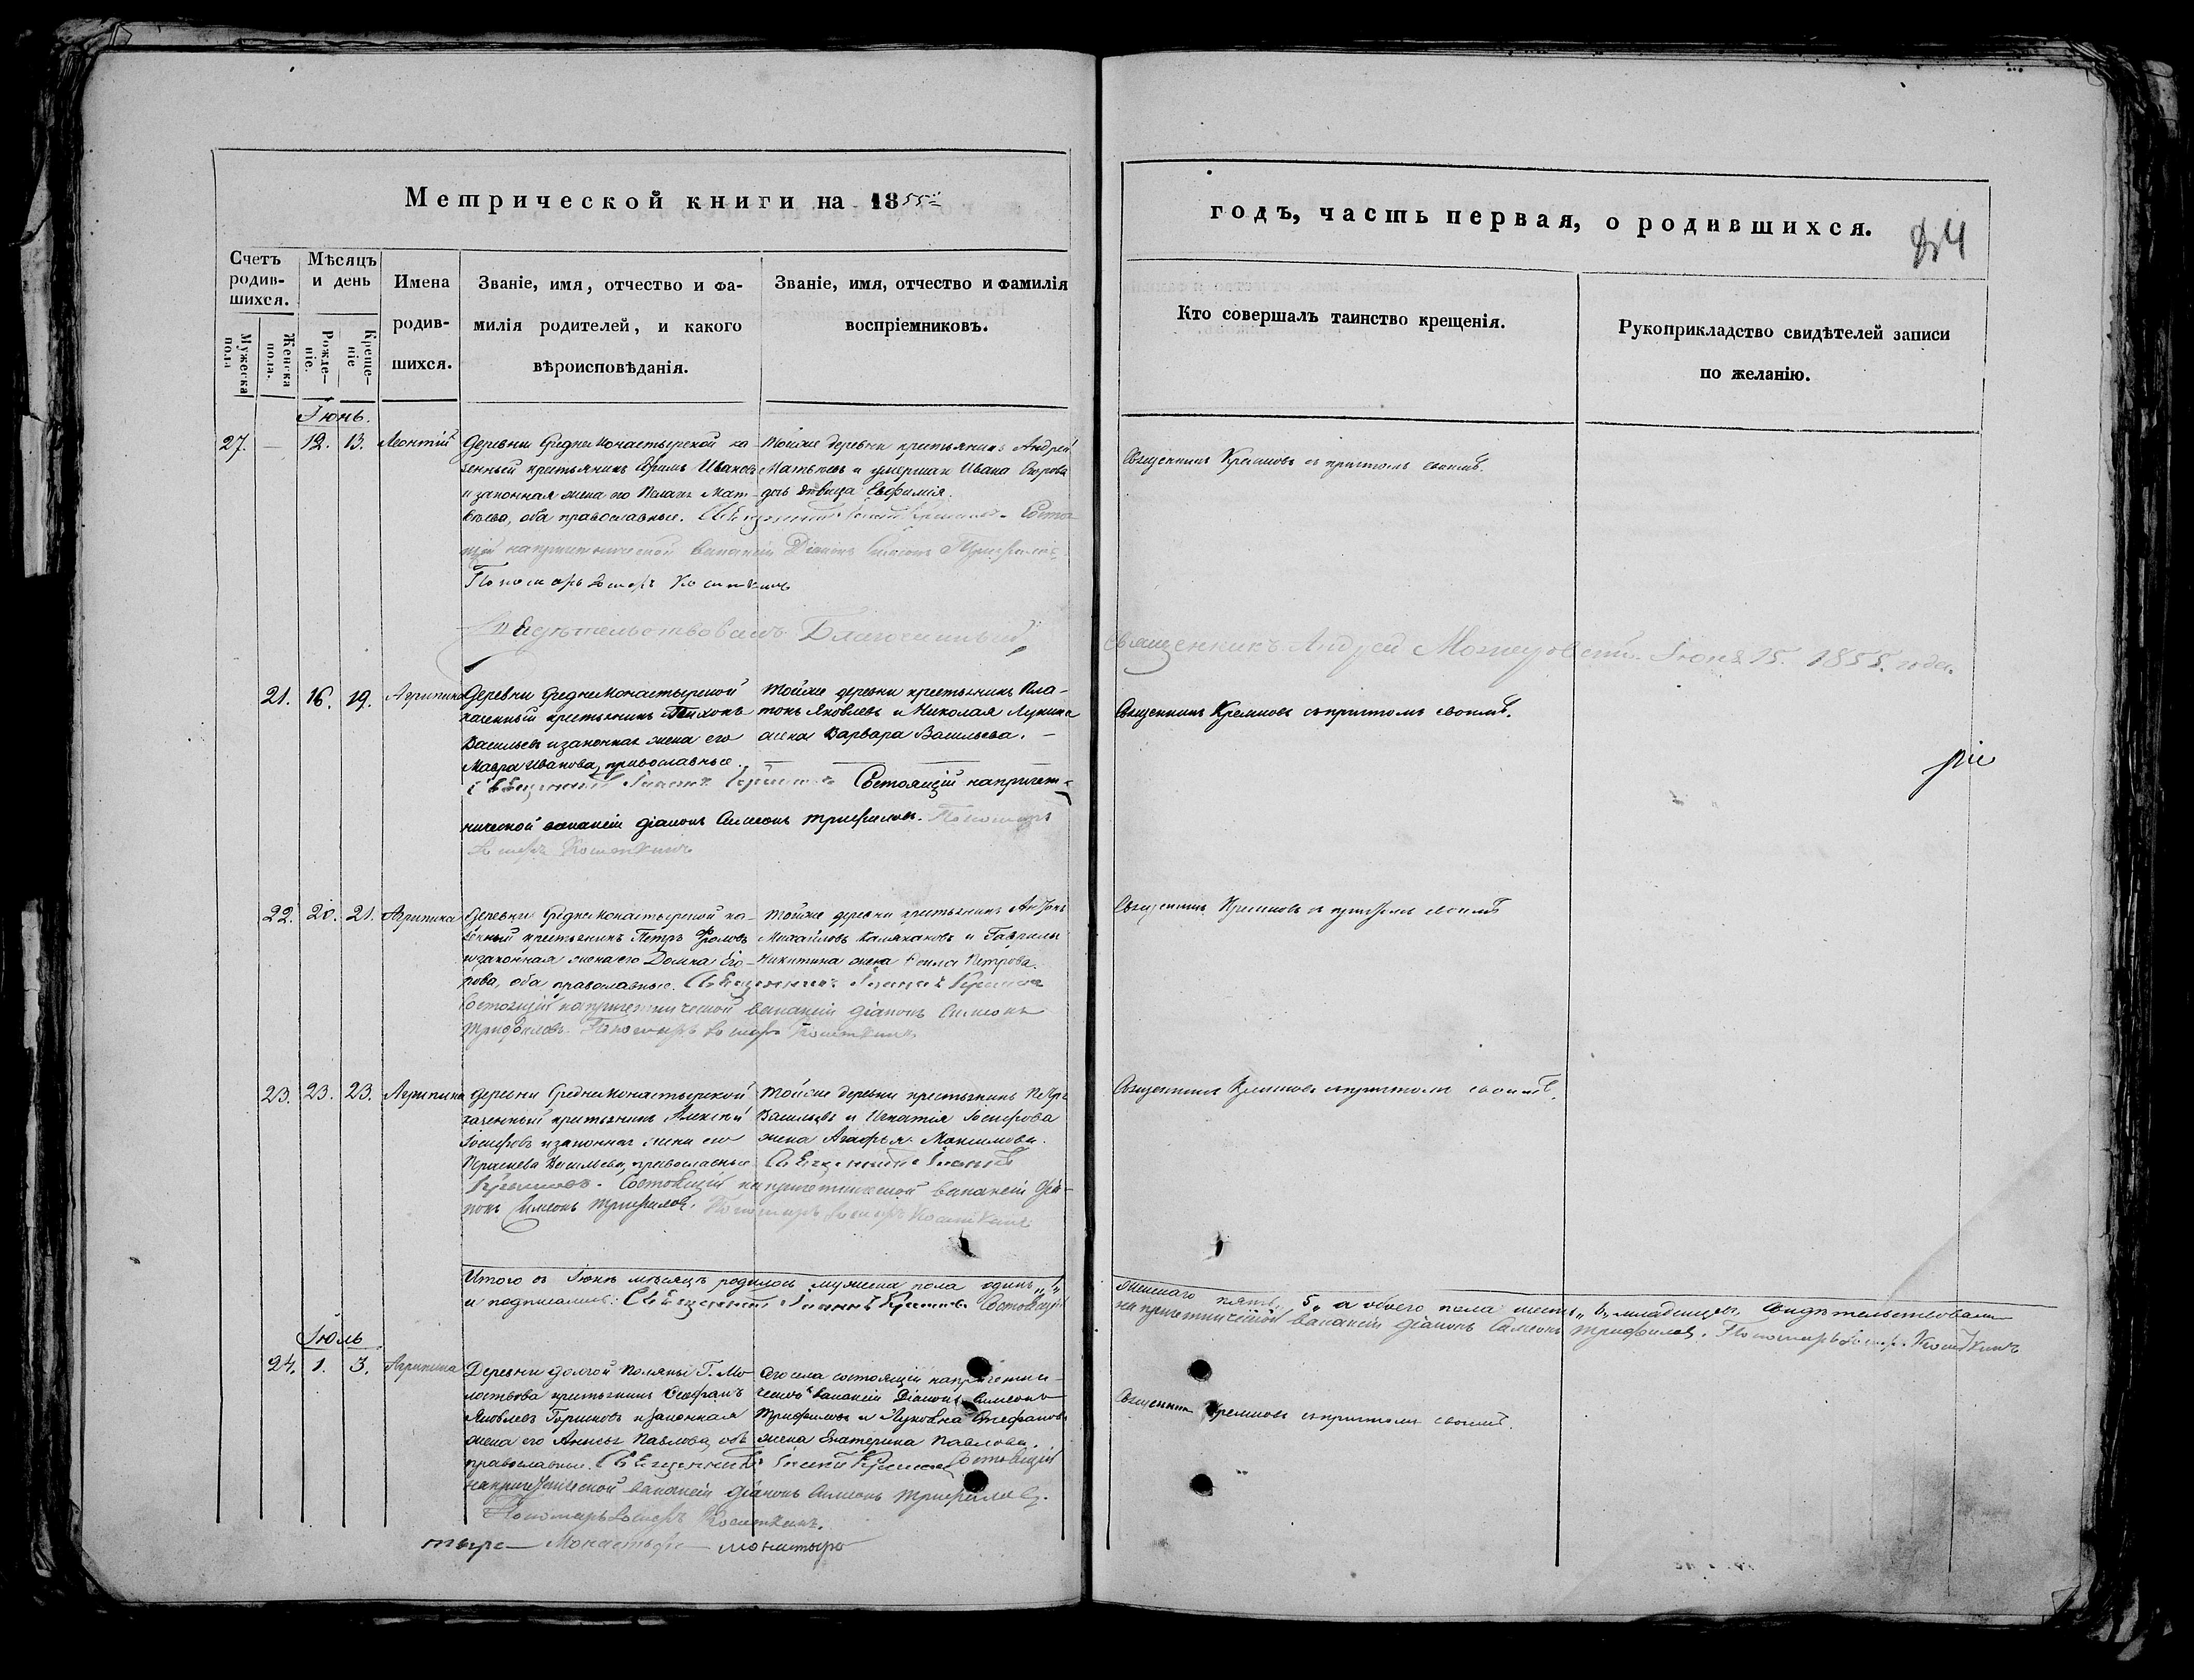 Метрической книги на 1855й
годъ, часть первая, о родившихся.
84
Счетъ родив-шихся.
Мужеска пола
Женска пола.
Мѣсяцъ и день
Рожде-ніе.
Креще-ніе
Имена
родив-
шихся.
Званіе, имя, отчество и фа-
милія родителей, и какого
вѣроисповѣданія.
Званіе, имя, отчество и фамилія
воспріемниковъ.
Кто совершалъ таинство крещенія.
Рукоприкладство свидѣтелей записи
по желанію.
Іюнь.
27. — 12. 13. Леонтій
Деревни Среднемонастырской ка-
зенный крестьянинъ Ефимъ Ивановъ
и законная жена его Мат-
вѣева, оба православные. Священникъ Кремковъ. Состоя-
щій на причетнической вакансіи Діаконъ Симеонъ Трифиловъ
Пономарь Косткинъ
Тойже деревни крестьянинъ Андрей
Матвѣевъ и умершаго Ивана
дочь дѣвица Евфимія.
Священникъ Кремковъ съ причтомъ своимъ.
Свидѣтельствовалъ Благочинный,
Священникъ Андрей Іюня 15. 1855. года.
21. 16. 19. Агрипина
Деревни Среднемонастырской
казенный крестьянинъ Тихонъ
Васильевъ и законная жена его
Мавра Иванова, православные.
Священникъ Іоаннъ Кремковъ Состоящій на причет-
нической вакансіи діаконъ Симеонъ Трифиловъ. Пономарь
Косткинъ
Тойже деревни крестьянинъ Пла-
тонъ Яковлевъ и Николая Лукина
жена Варвара Васильева. —
Священникъ Кремковъ съ причтомъ своимъ.
ріе
22. 20. 21. Агрипина
Деревни Среднемонастырской ка-
зенный крестьянинъ Петръ Фроловъ
и законная жена его Домна Его-
рова, оба православные. Священникъ Іоаннъ Кремковъ
Состоящій на причетнической вакансіи діаконъ Симеонъ
Трифиловъ. Пономарь Косткинъ
Тойже деревни крестьянинъ Антонъ
Михайловъ и Гаврилы
Никитина жена Петрова.
Священникъ Кремковъ съ причтомъ своимъ
23. 23. 23. Агрипина
Деревни Среднемонастырской
казенный крестьянинъ Алексѣй
Іосифовъ и законная жена его
Васильева, православные. Священникъ Іоаннъ
Кремковъ. Состоящій на причетнической вакансіи Діа-
конъ Симеонъ Трифиловъ. Пономарь Косткинъ
Тойже деревни крестьянинъ Петръ
Васильевъ и Игнатія Іосифова
жена Агафья Максимова.
Священникъ Кремковъ съ причтомъ своимъ.
Итого въ Іюнѣ мѣсяцѣ родилось мужеска пола одинъ „1„
женскаго пять „5„ а обоего пола шесть „6„ младенцевъ. Свидѣтельствовали
и подписались: Священникъ Іоаннъ Кремковъ Состоящій
на причетнической вакансіи діаконъ Симеонъ Трифиловъ. Пономарь Косткинъ
Іюль
24. 1. 3. Агрипина
Деревни Долгой Поляны Г. Мо-
лоствова крестьянинъ Стефанъ
Яковлевъ Горшковъ и законная
жена его Анисья Павлова, оба
православные. Священникъ Іоаннъ Кремковъ Состоящій
на причетнической вакансіи діаконъ Симеонъ Трифиловъ.
Пономарь Косткинъ.
Сего села состоящій на причетни-
ческой вакансіи Діаконъ Симеонъ
Трифиловъ и Стефанова
жена Екатерина Павлова.
Священникъ Кремковъ съ причтомъ своимъ.
тыре — Монастыре — монастыро